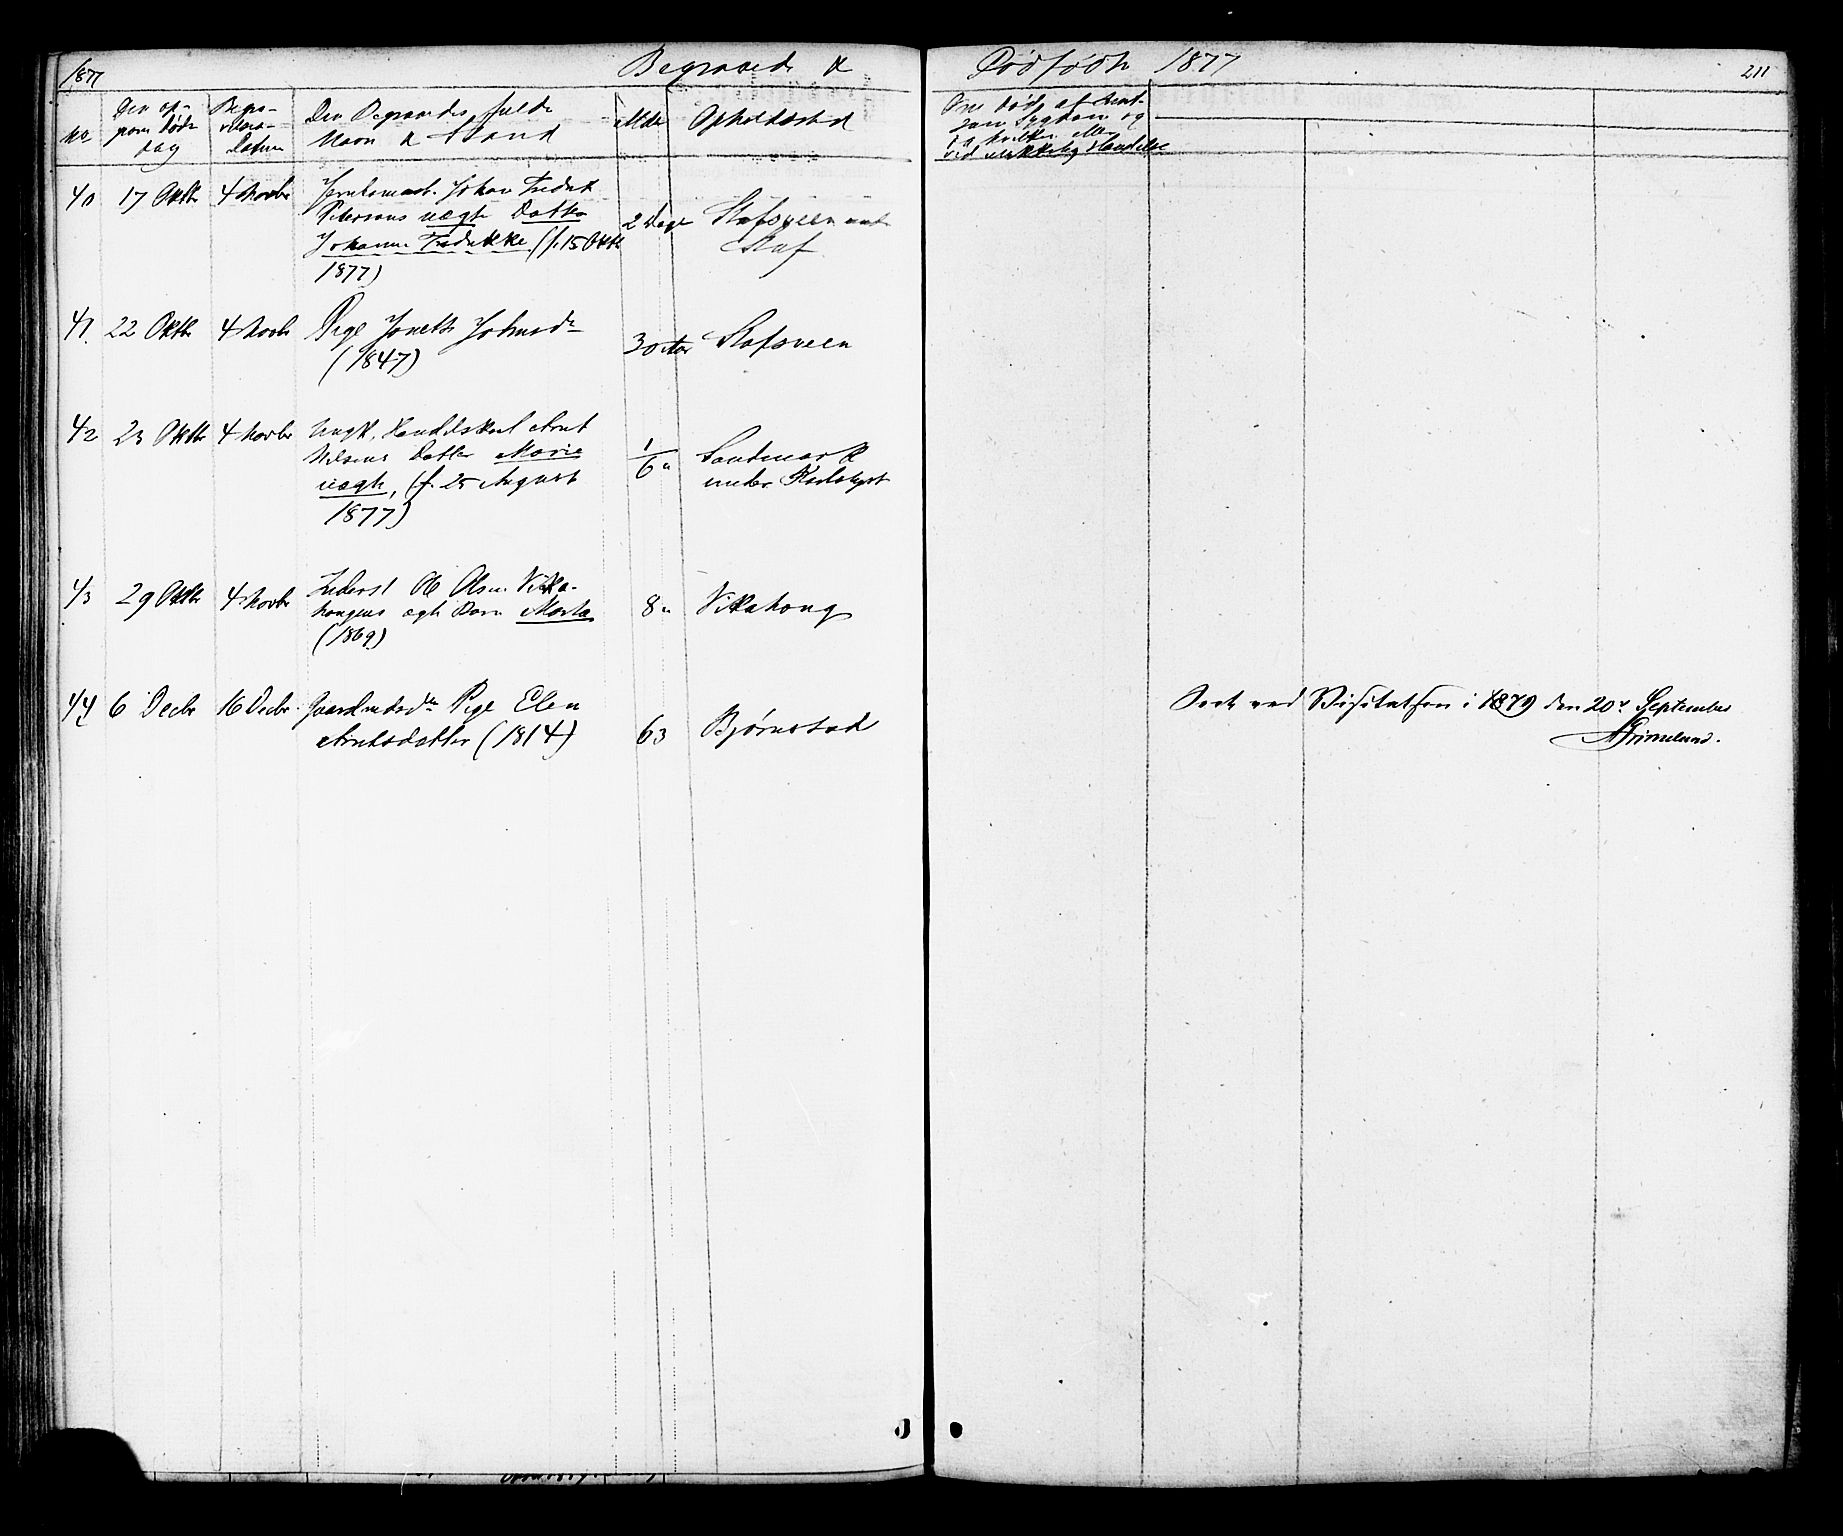 1877
Begravede &
Dødfødte 1877
211
No
Den op-
given Døds
dag
Begra-
velses-
Datum
Den Begravedes fulde
Navn & Stand
Alder
Opholdssted
Om Død af
Sygdom og
hvilken eller
ved ulykkelig Hændelse
40
17 Oktbr
4 Novbr
Johan Fredrik
Petersens uægte Datter
Johanne Fredrikke (f. 15 Oktbr
1877)
2 Dage
Stafsveen
Staf
41.
22 Oktbr
4 Novbr
Pige Jonette Johnsdr
(1847)
30 Aar
Stafsveen
42
23 Oktbr
4 Novbr
Ungk. Handelskarl Arnt
Nilsens Datter Marie
uægte, (f. 25 August
1877)
1/6 "
Sandmark
under
43
29 Oktbr
4 Novbr
Inderst Ole Olsen Vikka-
haugens ægte Barn Marta
(1869)
8 "
Vikahaug
44
6 Decbr
16 Decbr.
Pige Elen
Arntsdatter (1814)
63
Bjørnstad
Seet ved Visitatsen i 1879 den 20de September
AGrimelund.